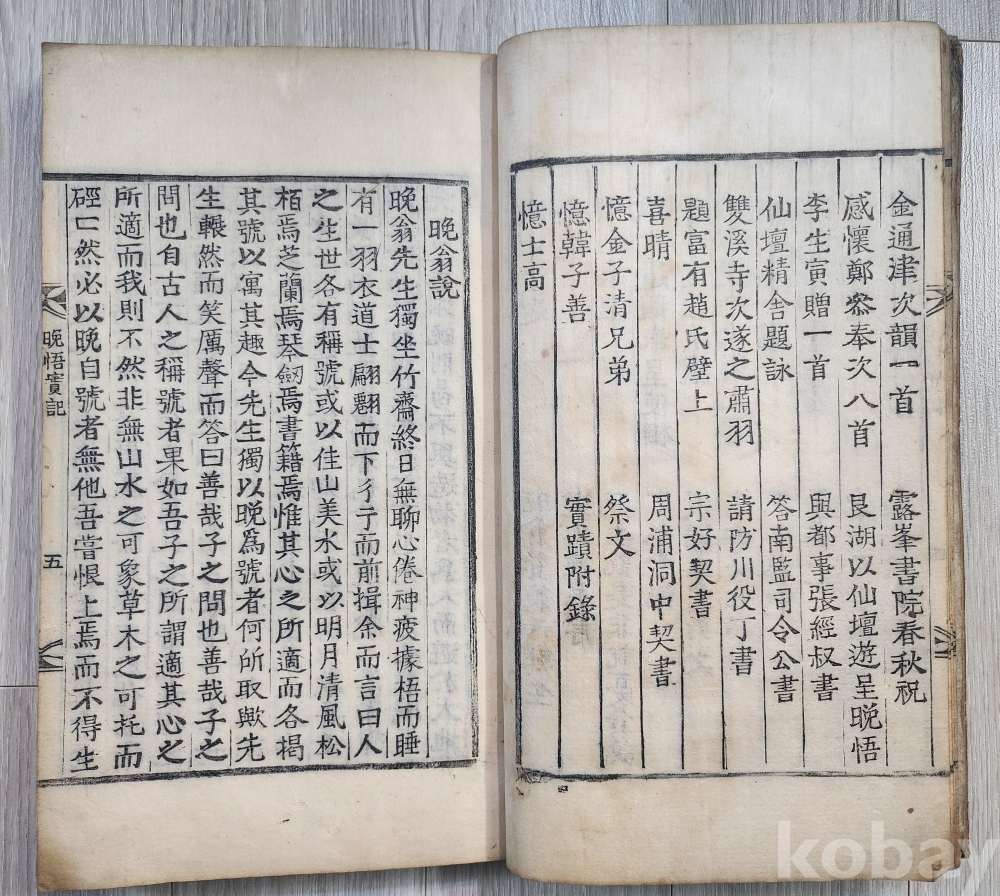 金通津次韻一首 露峯書院春秋祝
感懷鄭叅奉次八首 艮湖以仙壇遊呈晩悟
李生寅贈一首 與都事張經叔書
仙壇精舍題詠 答南監司令公書
雙溪寺次遂之肅羽 請防川役丁書
題富有趙氏壁上 宗好契書
喜晴 周浦洞中契書
憶金子清兄弟 祭文
憶韓子善 實蹟附錄
憶士高
晩翁說
晩翁先生獨坐竹齋終日無聊心倦神疲據梧而睡
有一羽衣道士翩翩而下亍亍而前揖余而言曰人
之生世各有稱號或以佳山美水或以明月清風松
栢焉芝蘭焉琴劒焉書籍焉惟其心之所適而各揭
其號以寓其趣今先生獨以晩爲號者何所取歟先
生冁然而笑厲聲而答曰善哉子之問也善哉子之
問也自古人之稱號者果如吾子之所謂適其心之
所適而我則不然非無山水之可象草木之可托而
硜口然必以晩自號者無他吾嘗恨上焉而不得生
晩悟實記 五
kobay